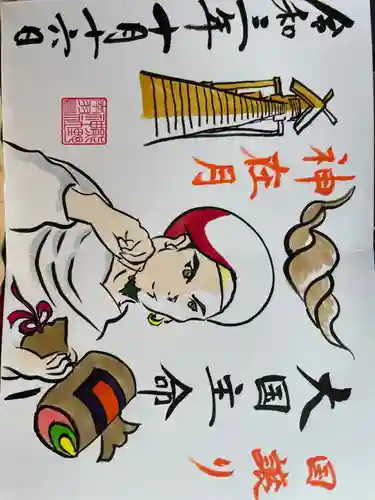 国譲り
大国主命
神在月
令和三年十月十六日